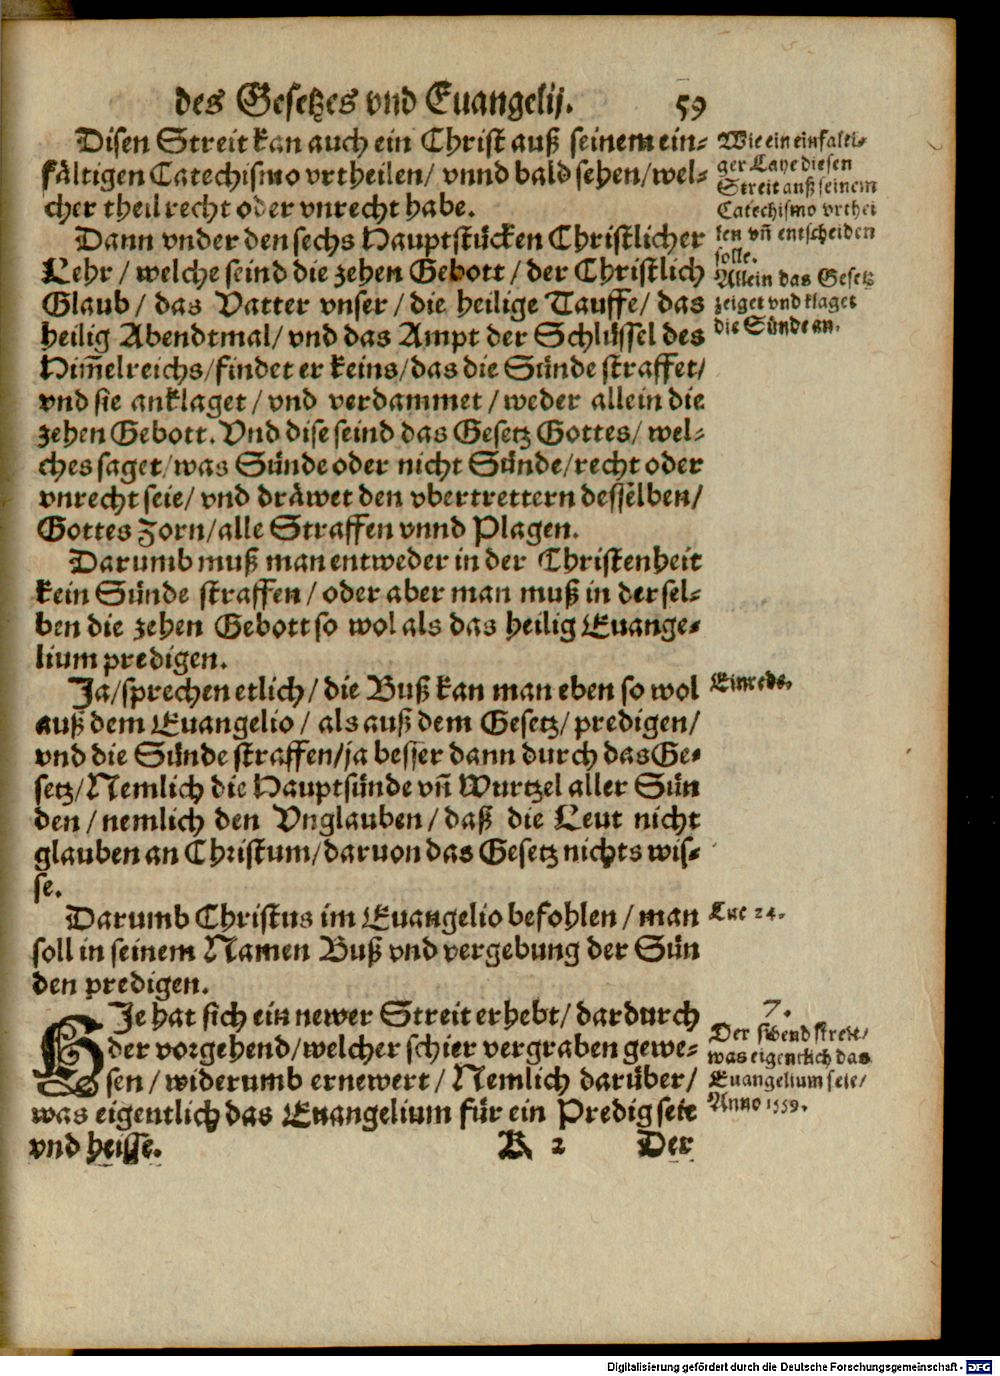 des Gesetzes vnd Euangelij. 59
Disen Streit kan auch ein Christ auß seinem ein-
fältigen Catechismo vrtheilen/ vnnd bald sehen/ wel-
cher theil recht oder vnrecht habe.
Wie ein einfalti-
ger Laye diesen
Streit auß seinem
Catechismo vrthei
len vñ entscheiden
solle.
Dann vnder den sechs Hauptstücken Christlicher
Lehr / welche seind die zehen Gebott / der Christlich
Glaub / das Vatter vnser / die heilige Tauffe / das
heilig Abendtmal/ vnd das Ampt der Schlüssel des
Him̃elreichs/findet er keins/das die Sünde straffet/
vnd sie anklaget / vnd verdammet / weder allein die
zehen Gebott. Vnd dise seind das Gesetz Gottes/ wel-
ches saget/was Sünde oder nicht Sünde/recht oder
vnrecht seie/ vnd dräwet den vbertrettern desselben/
Gottes Zorn/alle Straffen vnnd Plagen.
Allein das Gesetz
zeiget vnd klaget
die Sünde an.
Darumb muß man entweder in der Christenheit
kein Sünde straffen / oder aber man muß in dersel-
ben die zehen Gebott so wol als das heilig Euange-
lium predigen.
Ja/sprechen etlich/ die Buß kan man eben so wol
auß dem Euangelio / als auß dem Gesetz/ predigen/
vnd die Sünde straffen/ja besser dann durch das Ge-
setz/Nemlich die Hauptsünde vñ Wurtzel aller Sün
den / nemlich den Vnglauben / daß die Leut nicht
glauben an Christum/daruon das Gesetz nichts wis-
se.
Einrede.
Darumb Christus im Euangelio befohlen / man
soll in seinem Namen Buß vnd vergebung der Sün
den predigen.
Luc 24.
HJe hat sich ein newer Streit erhebt/ dardurch
der vorgehend/welcher schier vergraben gewe-
sen / widerumb ernewert / Nemlich darüber/
was eigentlich das Euangelium für ein Predig seie
vnd heisse.
7.
Der sibend streit/
was eigentlich das
Euangelium seie/
Anno 1559.
K 2 Der
Digitalisierung gefördert durch die Deutsche Forschungsgemeinschaft - DFG